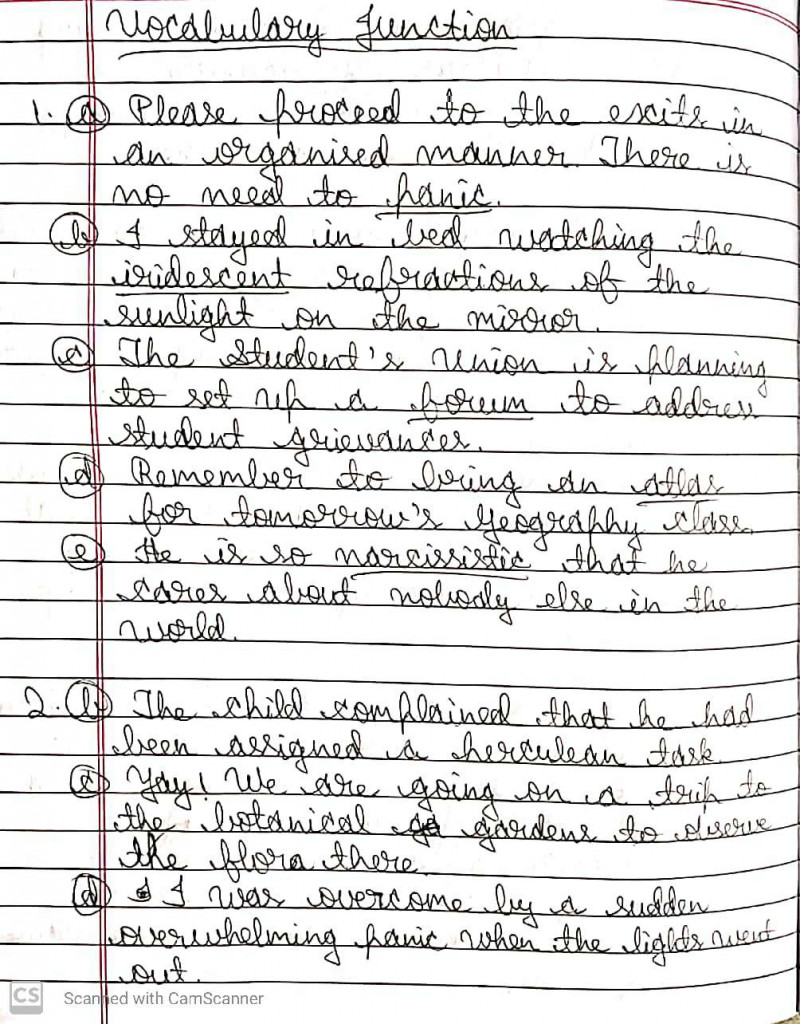 Vocabulary Junction
1. (a) Please proceed to the excits in
an organised manner. There is
no need to panic.
(b) I stayed in bed watching the
iridescent refractions of the
sunlight on the mirror.
(c) The student's union is planning
to set up a forum to address
student grievances.
(d) Remember to bring an atlas
for tomorrow's geography class.
(e) He is so narcissistic that he
cares about nobody else in the
world.
2. (b) The child complained that he had
been assigned a herculean task
(c) Yay! We are going on a trip to
the botanical gardens to observe
the flora there.
(d) I was overcome by a sudden
overwhelming panic when the lights went
out.
CS Scanned with CamScanner